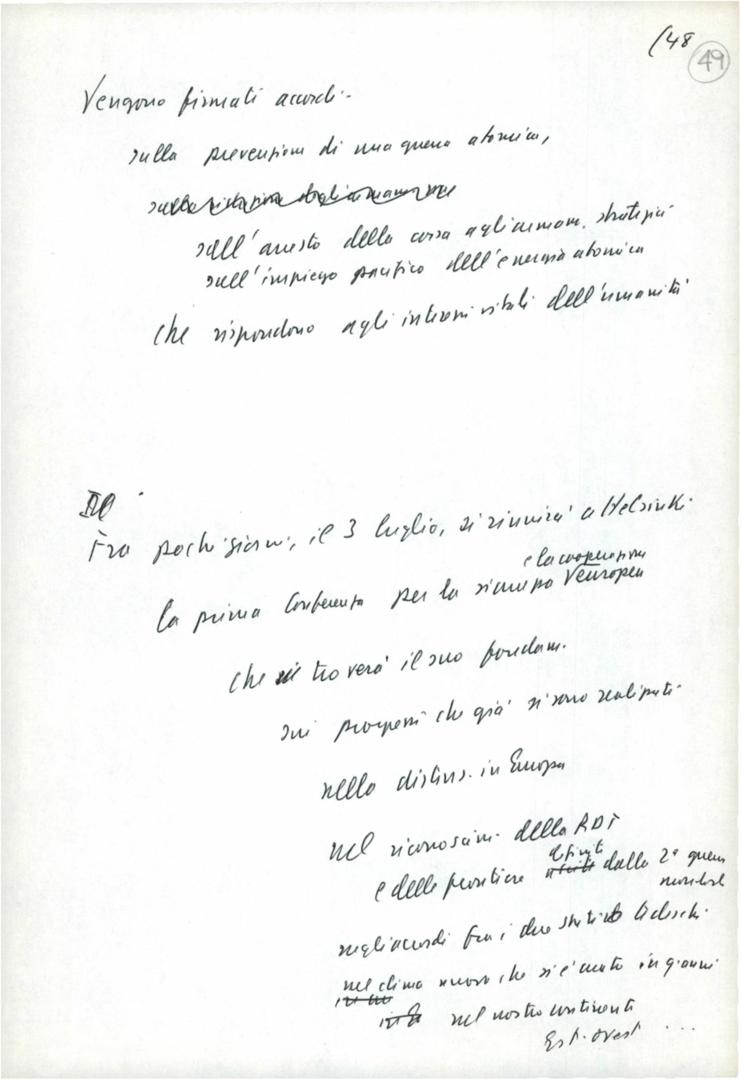 (48
49
Vengono firmati accordi -
sulla prevenzione di una guerra atomica,
sull'arresto della corsa agli armam. strategici
sull'impiego pacifico dell'energia atomica
che rispondono agli interessi vitali dell'umanità
Fra pochi giorni, il 3 luglio, si riunirà a Helsinki
e la cooperazione
la prima Conferenza per la sicurezza europea
che troverà il suo fondam.
sui progressi che già si sono realizzati
nella distens. in Europa
nel riconoscim. della RDT
definite
e delle frontiere uscite dalla 2ª guerra
mondiale
negli accordi fra i due stati tedeschi
nel clima nuovo che si è creato in
nel nostro continente
Est-Ovest ...